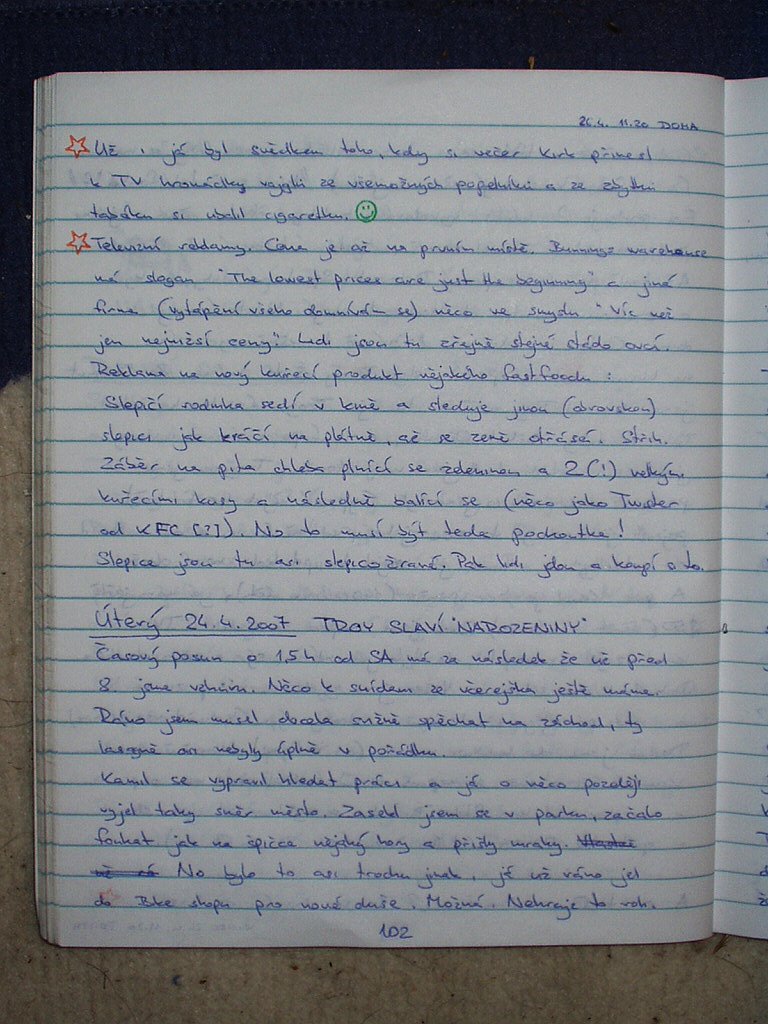 26.4. 11.20 DOHA
Už i já byl svědkem toho, kdy si večer Kirk přinesl
k TV hromádky vajglů ze všemožných popelníků a ze zbytků
tabáku si ubalil cigaretku.
Televizní reklamy. Cena je až na prvním místě. Bunnings warehouse
má slogan "The lowest prices are just the beginning" a jiná
firma (vytápění všeho domnívám se) něco ve smyslu "Víc než
jen nejnižší ceny". Lidi jsou tu zřejmě stejné stádo ovcí.
Reklama na nový kuřecí produkt nějakého fastfoodu :
Slepičí rodinka sedí v kině a sleduje jinou (obrovskou)
slepici jak kráčí na plátně, až se země otřásá. Střih.
Záběr na pita chleba plnící se zeleninou a 2(!) velkými
kuřecími kusy a následně balící se (něco jako Twister
od KFC [?]). No to musí být teda pochoutka!
Slepice jsou tu asi slepicožravé. Pak lidi jdou a koupí si to.
Úterý 24.4.2007 TROY SLAVÍ "NAROZENINY"
Časový posun o 1,5h od SA má za následek že už před
8. jsme vzhůru. Něco k snídani ze včerejška ještě máme.
Ráno jsem musel docela svižně spěchat na záchod, ty
lasagně asi nebyly úplně v pořádku.
Kamil se vypravil hledat práci a já o něco později
vyjel taky směr město. Zasekl jsem se v parku, začalo
foukat jak na špičce nějaký hory a přišly mraky.
No bylo to asi trochu jinak, já už ráno jel
do Bike shopu pro nové duše. Možná. Nehraje to roli.
102